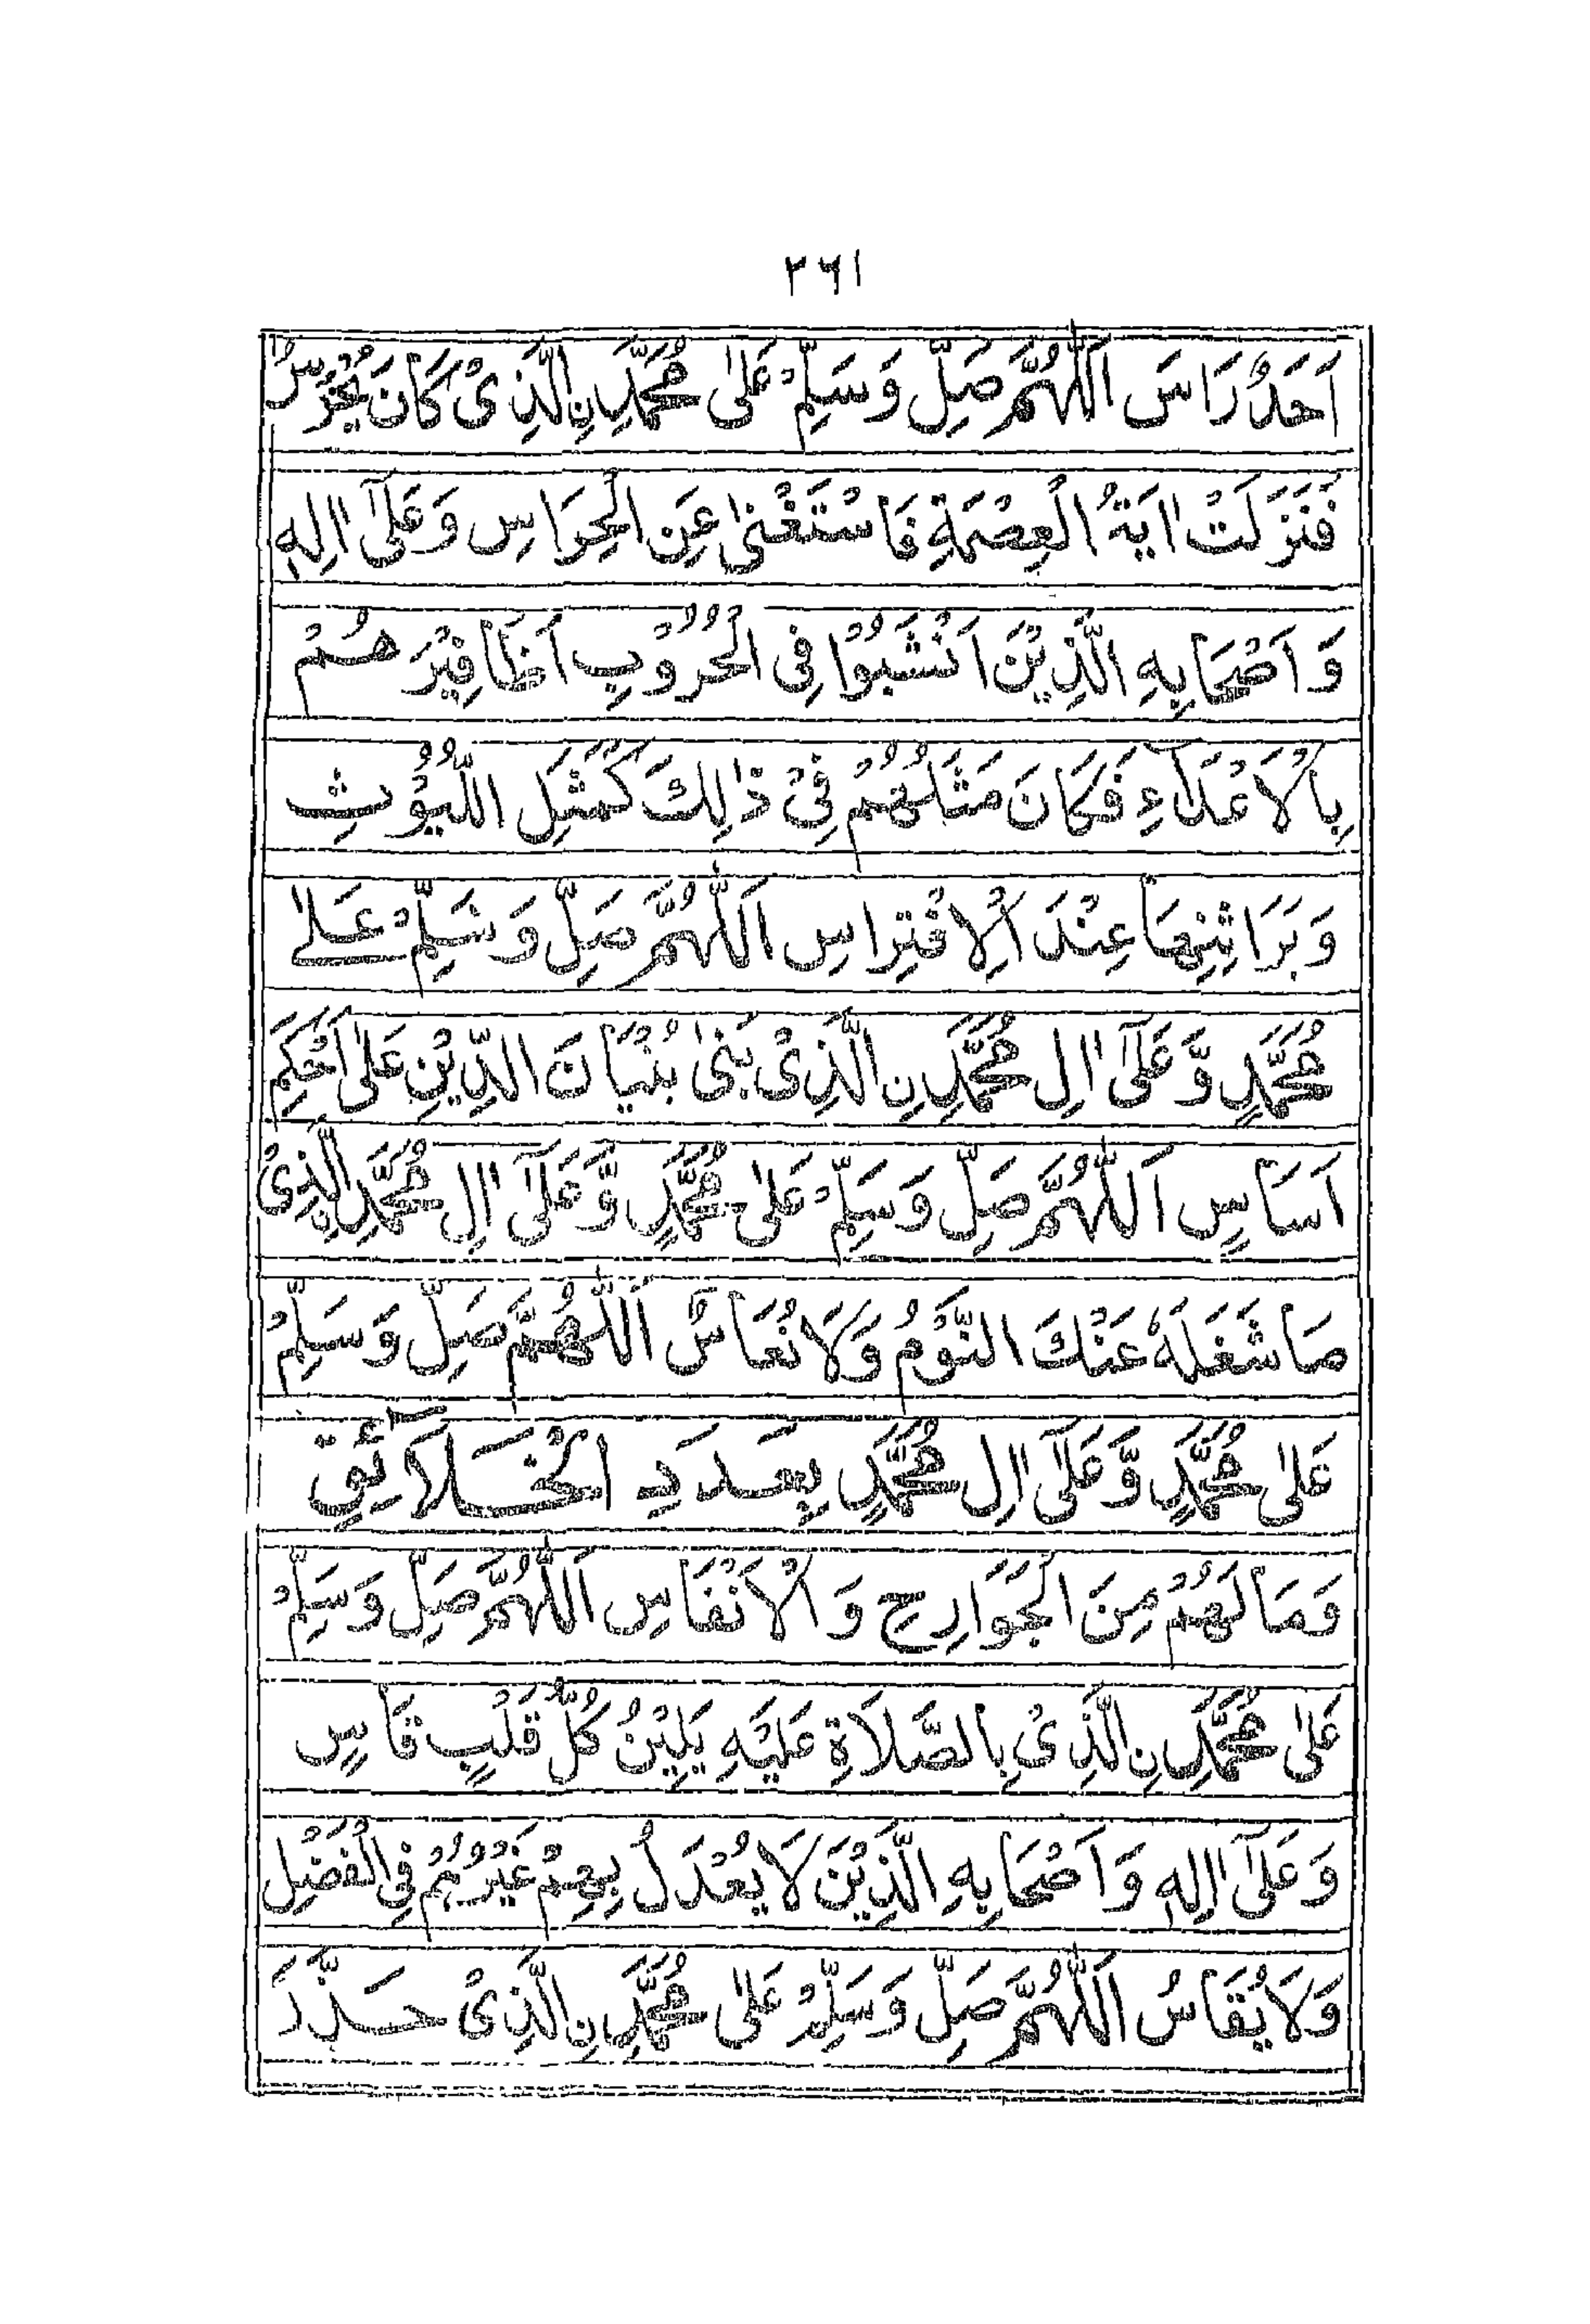 ۲۶۱
اَحَدٌ رَاسَ اَللّٰهُمَّ صَلِّ وَسَلِّمْ عَلٰى مُحَمَّدِنِ الَّذِىْ كَانَ يُحْرَسُ
فَنَزَلَتْ اٰيَةُ الْعِصْمَةِ فَاسْتَغْنٰى عَنِ الْحِرَاسِ وَعَلٰٓى اٰلِهٖ
وَاَصْحَابِهِ الَّذِيْنَ اَنْشَبُوْا فِى الْحُرُوْبِ اَظَافِيْرَهُمْ
بِالْاَعْدَآءِ فَكَانَ مَثَلُهُمْ فِىْ ذٰلِكَ كَمَثَلِ اللُّيُوْثِ
وَبَرَاثِنِهَا عِنْدَ الْاِفْتِرَاسِ اَللّٰهُمَّ صَلِّ وَسَلِّمْ عَلٰى
مُحَمَّدٍ وَّعَلٰٓى اٰلِ مُحَمَّدِنِ الَّذِىْ بَنٰى بُنْيَانَ الدِّيْنِ عَلٰى اَحْكَمِ
اَسَاسٍ اَللّٰهُمَّ صَلِّ وَسَلِّمْ عَلٰى مُحَمَّدٍ وَّعَلٰٓى اٰلِ مُحَمَّدِنِ الَّذِىْ
مَا شَغَلَهٗ عَنْكَ النَّوْمُ وَلَا نُعَاسٌ اَللّٰهُمَّ صَلِّ وَسَلِّمْ
عَلٰى مُحَمَّدٍ وَّعَلٰٓى اٰلِ مُحَمَّدٍ بِعَدَدِ الْخَلَآئِقِ
وَمَا لَهُمْ مِنَ الْجَوَارِحِ وَالْاَنْفَاسِ اَللّٰهُمَّ صَلِّ وَسَلِّمْ
عَلٰى مُحَمَّدِنِ الَّذِىْ بِالصَّلَاةِ عَلَيْهِ يَلِيْنُ كُلُّ قَلْبٍ قَاسٍ
وَعَلٰٓى اٰلِهٖ وَاَصْحَابِهِ الَّذِيْنَ لَا يُعْدَلُ بِهِمْ غَيْرُهُمْ فِى الْفَضْلِ
وَلَا يُقَاسُ اَللّٰهُمَّ صَلِّ وَسَلِّمْ عَلٰى مُحَمَّدِنِ الَّذِىْ حَذَّرَ